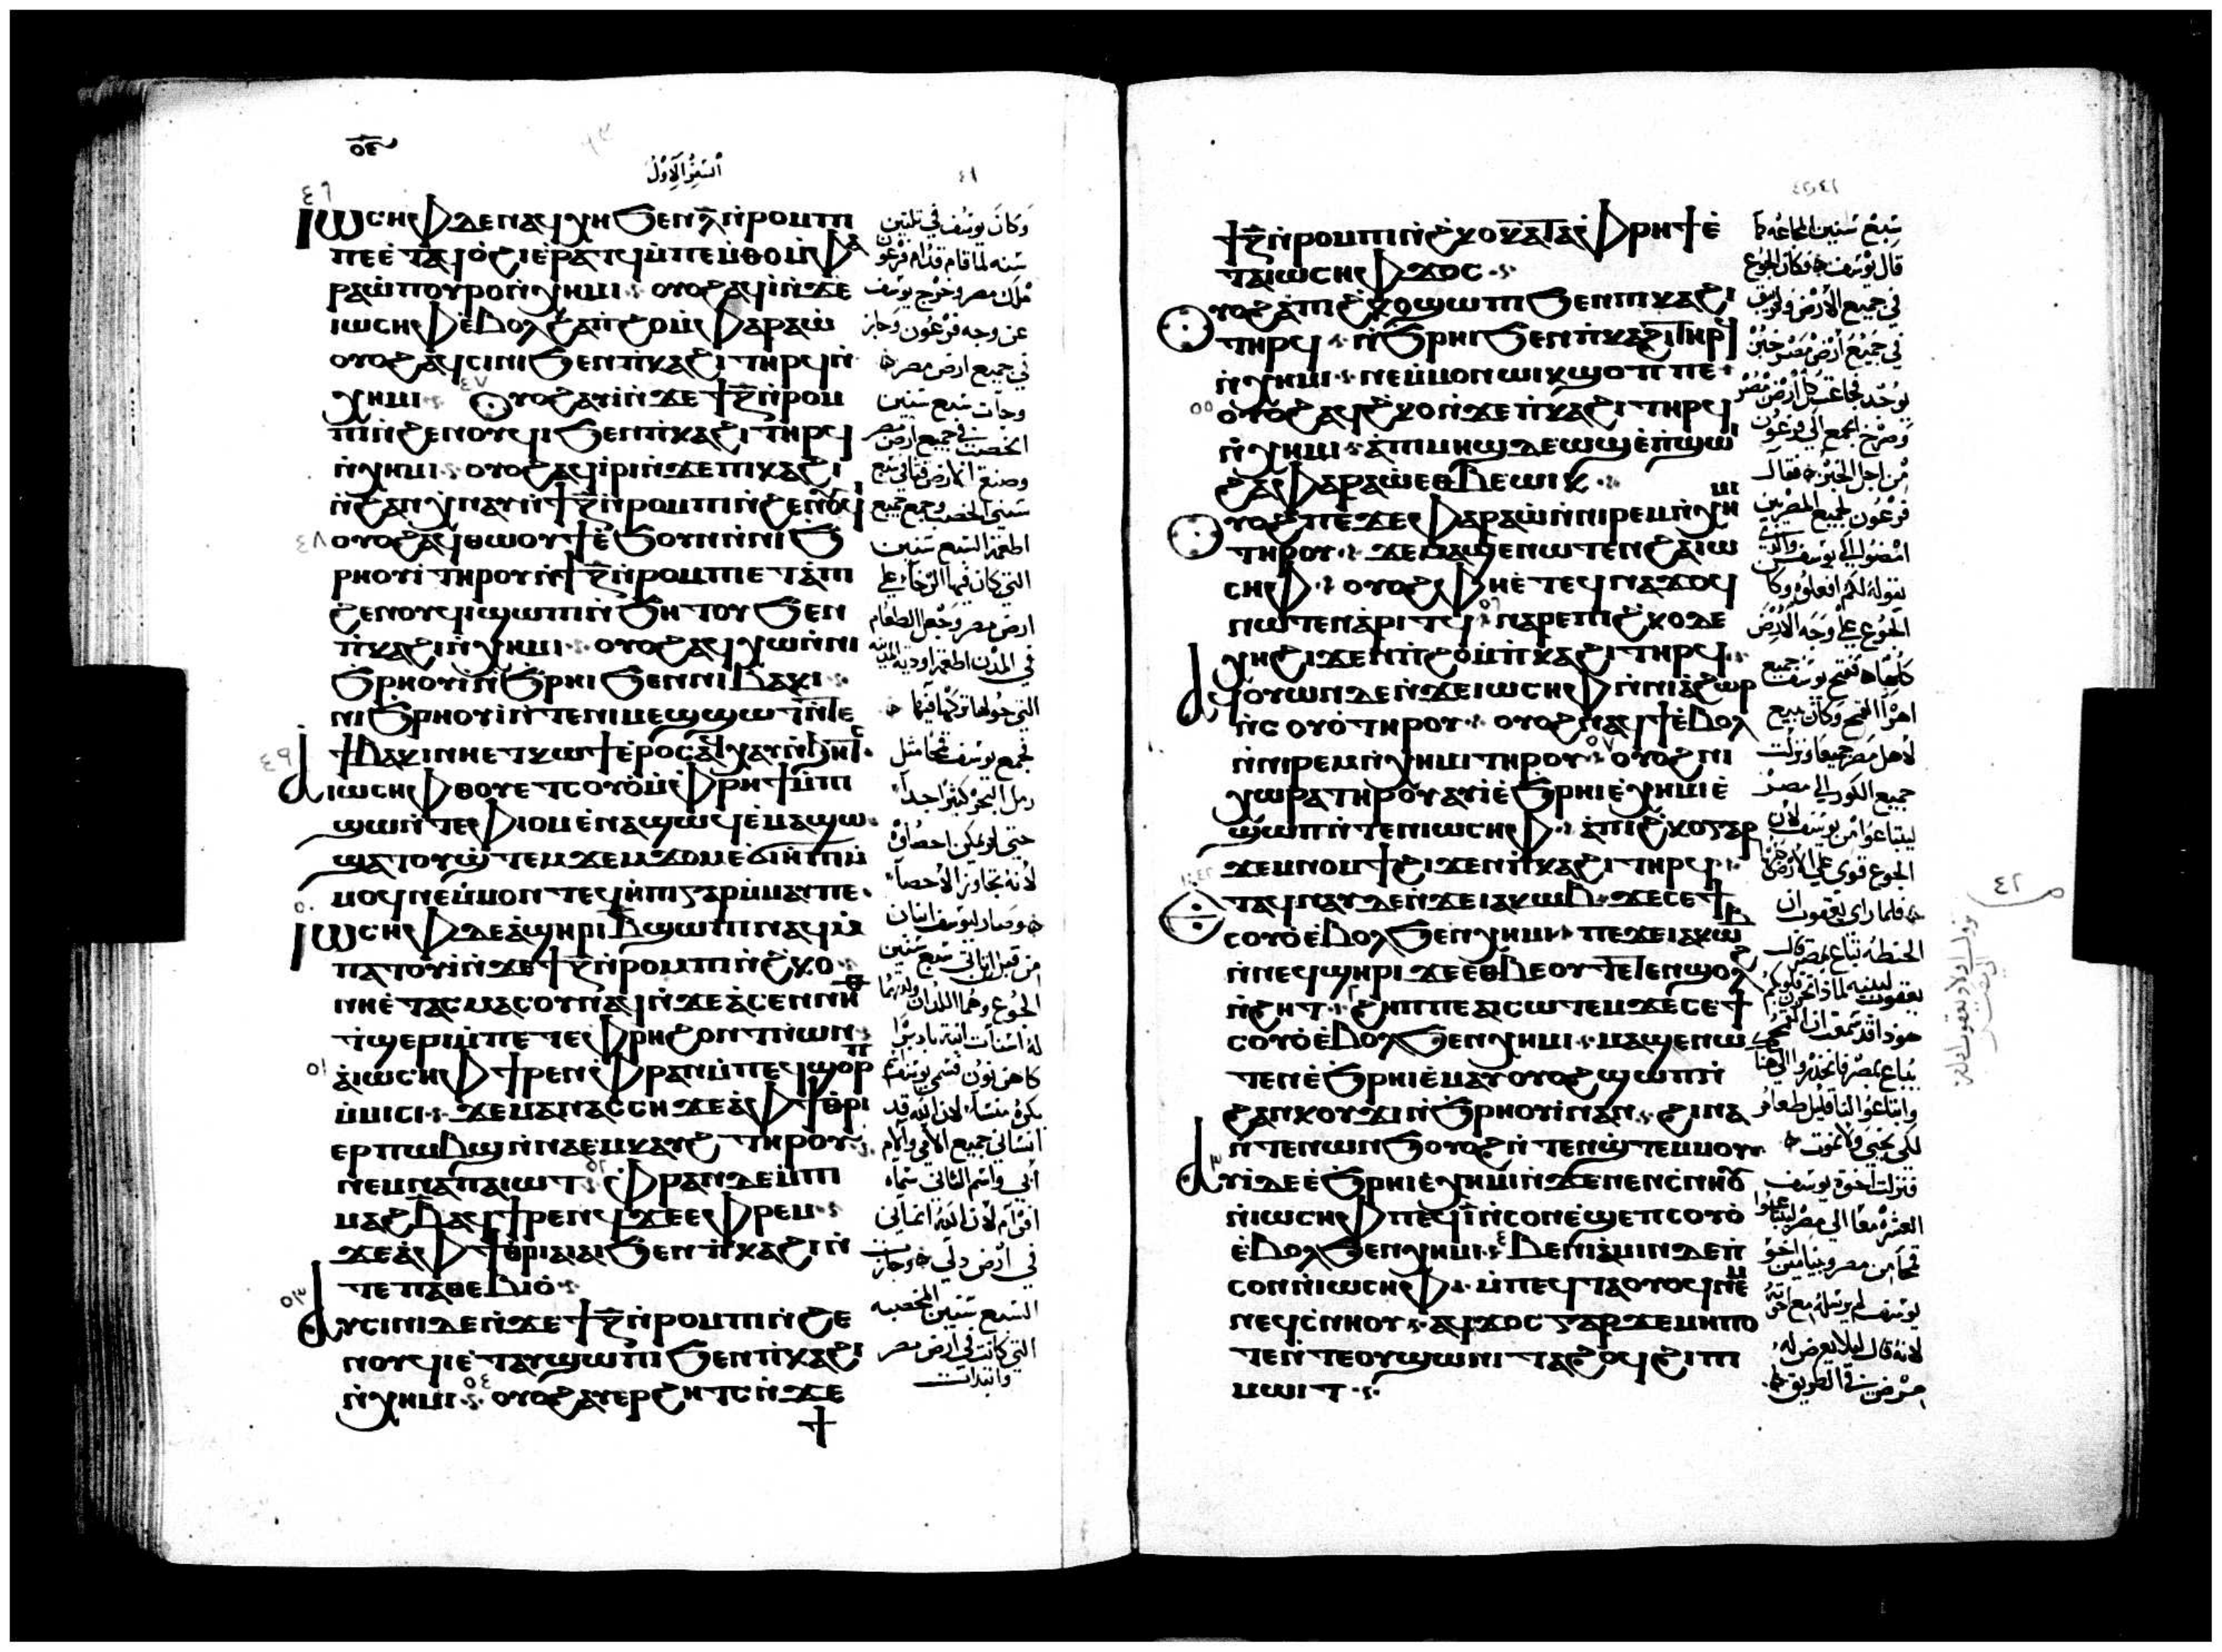 ⲟⲉ
٤٦
السفر الاول
٤١
ⲓⲱⲥⲏⲫ ⲇⲉ ⲛⲁϥⲭⲏ ϧⲉⲛ ⲗ̅ ⲛ̀ⲣⲟⲙⲡⲓ
ⲡⲉ ⲉ̀ⲧⲁϥⲟ̀ϩⲓ ⲉ̀ⲣⲁⲧϥ ⲙ̀ⲡⲉⲙ̀ⲑⲟ ⲙ̀ⲫⲁ
ⲣⲁⲱ̀ ⲡⲟⲩⲣⲟ ⲛ̀ⲭⲏⲙⲓ ⲟⲩⲟϩ ⲁϥⲓ̀ ⲛ̀ϫⲉ
ⲓⲱⲥⲏⲫ ⲉ̀ⲃⲟⲗ ϩⲁ ⲡ̀ϩⲟ ⲙ̀ⲫⲁⲣⲁⲱ̀
ⲟⲩⲟϩ ⲁϥⲥⲓⲛⲓ ϧⲉⲛ ⲡ̀ⲕⲁϩⲓ ⲧⲏⲣϥ ⲛ̀
ⲭⲏⲙⲓ ٤٧ ⲟⲩⲟϩ ⲁⲩⲓ̀ ⲛ̀ϫⲉ ϯⲍ̅ ⲛ̀ⲣⲟⲙ
ⲡⲓ ⲛ̀ϩⲉⲛⲟⲩϥⲓ ϧⲉⲛ ⲡ̀ⲕⲁϩⲓ ⲧⲏⲣϥ
ⲛ̀ⲭⲏⲙⲓ ⲟⲩⲟϩ ⲁϥⲓ̀ⲣⲓ ⲛ̀ϫⲉ ⲡⲓⲕⲁϩⲓ
ⲛ̀ϩⲁⲛϫⲛⲁⲩ ⲛ̀ϯⲍ̅ ⲛ̀ⲣⲟⲙⲡⲓ ⲛ̀ϩⲉⲛⲟⲩϥⲓ
٤٨ ⲟⲩⲟϩ ⲁϥⲑⲱⲟⲩϯ ⲉ̀ϧⲟⲩⲛ ⲛ̀ⲛⲓϧ
ⲣⲏⲟⲩⲓ̀ ⲧⲏⲣⲟⲩ ⲛ̀ϯⲍ̅ ⲛ̀ⲣⲟⲙⲡⲓ ⲉⲧⲁ̀ⲡⲓ
ϩⲉⲛⲟⲩϥⲓ ϣⲱⲡⲓ ⲛ̀ϧⲏⲧⲟⲩ ϧⲉⲛ
ⲡ̀ⲕⲁϩⲓ ⲛ̀ⲭⲏⲙⲓ ⲟⲩⲟϩ ⲁϥⲭⲱ ⲛ̀ⲛⲓ
ϧⲣⲏⲟⲩⲓ̀ ⲛ̀ϧⲣⲏⲓ ϧⲉⲛ ⲛⲓⲃⲁⲕⲓ
ⲛⲓϧⲣⲏⲟⲩⲓ̀ ⲛ̀ⲧⲉ ⲛⲓⲙⲉϣϣⲱϯ ⲛ̀ⲧⲉ
ϯⲃⲁⲕⲓ ⲛⲏⲉⲧⲕⲱϯ ⲉ̀ⲣⲟⲥ ⲁϥⲭⲁⲩ ⲛ̀ϧⲏⲧⲥ
٤٩ ⲁⲓⲱⲥⲏⲫ ⲑⲟⲩⲉⲧ ⲥⲟⲩⲟ̀ ⲙ̀ⲫⲣⲏϯ ⲙ̀ⲡⲓ
ϣⲱ ⲛ̀ⲧⲉ ⲫⲓⲟⲙ ⲉ̀ⲛⲁϣⲱϥ ⲉ̀ⲙⲁϣⲱ
ϣⲁⲧⲟⲩϣ̀ⲧⲉⲙϫⲉⲙϫⲟⲙ ⲉ̀ϭⲓⲏ̀ⲡⲓ ⲙ̀
ⲙⲟϥ ⲛⲉ ⲙ̀ⲙⲟⲛ ⲧⲉϥⲏ̀ⲡⲓ ⲅⲁⲣ ⲙ̀ⲙⲁⲩ ⲡⲉ
٥٠ ⲓⲱⲥⲏⲫ ⲇⲉ ⲁ̀ϣⲏⲣⲓ ⲃ̅ ϣⲱⲡⲓ ⲛⲁϥ ⲙ̀
ⲡⲁⲧⲟⲩⲓ̀ ⲛ̀ϫⲉ ϯⲍ̅ ⲛ̀ⲣⲟⲙⲡⲓ ⲛ̀ϩⲕⲟ
ⲛⲏⲉ̀ⲧⲁⲥⲙⲁⲥⲟⲩ ⲛⲁϥ ⲛ̀ϫⲉ ⲁ̀ⲥⲉⲛⲛⲏⲑ
ⲧ̀ϣⲉⲣⲓ ⲙ̀ⲡⲉⲧⲉⲫⲣⲏ ϩⲟⲛⲧ ⲛ̀ⲱⲛ
٥١ ⲁ̀ⲓⲱⲥⲏⲫ ϯⲣⲉⲛ ⲫⲣⲁⲛ ⲙ̀ⲡⲉϥϣⲟⲣⲡ
ⲙ̀ⲙⲓⲥⲓ ϫⲉ ⲙⲁⲛⲁⲥⲥⲏ ϫⲉ ⲁ̀ⲫϯ ⲑⲣⲓ
ⲉⲣⲡⲱⲃϣ ⲛ̀ⲛⲁⲉⲙⲕⲁⲩϩ ⲧⲏⲣⲟⲩ
ⲛⲉⲙ ⲛⲁⲡⲁⲓⲱⲧ ٥٢ ⲫⲣⲁⲛ ⲇⲉ ⲙ̀ⲡⲓ
ⲙⲁϩⲃ̅ ⲁϥϯⲣⲉⲛϥ ϫⲉ ⲉⲫⲣⲉⲙ
ϫⲉ ⲁ̀ⲫϯ ⲑⲣⲓⲁⲓⲁⲓ ϧⲉⲛ ⲡ̀ⲕⲁϩⲓ ⲛ̀
ⲧⲉ ⲡⲁⲑⲉⲃⲓⲟ̀
٥٣ ⲁⲩⲥⲓⲛⲓ ⲇⲉ ⲛ̀ϫⲉ ϯⲍ̅ ⲛ̀ⲣⲟⲙⲡⲓ ⲛ̀ϩⲉ
ⲛⲟⲩϥⲓ ⲉ̀ⲧⲁⲩϣⲱⲡⲓ ϧⲉⲛ ⲡ̀ⲕⲁϩⲓ
ⲛ̀ⲭⲏⲙⲓ ٥٤ ⲟⲩⲟϩ ⲁⲩⲉⲣϩⲏⲧⲥ ⲛ̀ϫⲉ
ϯ
وكان يوسف في تلتين
سنه لما قام قدام فرعون
ملك مصر وخرج يوسف
عن وجه فرعون وجاز
في جميع ارض مصر
وجات سبع سنين
الخصب في جميع ارض مصر
وصنع الارض قتاني سبع
سنين الخصب وجمع جميع
اطعمة السبع سنين
التي كان فيها الرخاء علي
ارض مصر وجعل الطعام
في المدن اطعمة اودية المدينه
التي حولها تركها فيها
فجمع يوسف قمحا مثل
رمل البحر كثيرا جدا
حتي لم يمكن احصاوه
لانه تجاوز الاحصا
وصار ليوسف ابنان
من قبل ان تاتي سبع سنين
الجوع وهما اللذان ولدتهما
له اسنات ابنة بادبرا
كاهن نون فسمي يوسف
بكره منسا لان الله قد
انساني جميع الامي والام
ابي واسم الثاني سماه
افرام لان الله انماني
في ارض ذلي وجازت
السبع سنين الخصبه
التي كانت في ارض مصر
وابتدات
٤٢،٤١
ϯⲍ̅ ⲛ̀ⲣⲟⲙⲡⲓ ⲛ̀ϩⲕⲟ ⲕⲁⲧⲁ ⲫⲣⲏϯ ⲉ̀
ⲧⲁ ⲓⲱⲥⲏⲫ ϫⲟⲥ
ⲟⲩⲟϩ ⲁ̀ⲡⲓϩⲕⲟ ϣⲱⲡⲓ ϧⲉⲛ ⲡⲓⲕⲁϩⲓ
ⲧⲏⲣϥ ⲛ̀ϧⲣⲏⲓ ϧⲉⲛ ⲡ̀ⲕⲁϩⲓ ⲧⲏⲣϥ
ⲛ̀ⲭⲏⲙⲓ ⲛⲉ ⲙ̀ⲙⲟⲛ ⲱⲓⲕ ϣⲟⲡ ⲡⲉ
٥٥ ⲟⲩⲟϩ ⲁϥϩⲕⲟ ⲛ̀ϫⲉ ⲡ̀ⲕⲁϩⲓ ⲧⲏⲣϥ
ⲛ̀ⲭⲏⲙⲓ ⲁ̀ⲡⲓⲙⲏϣ ⲇⲉ ⲱϣ ⲉ̀ⲡ̀ϣⲱⲓ
ϩⲁ ⲫⲁⲣⲁⲱ̀ ⲉⲑⲃⲉ ⲱⲓⲕ
ⲟⲩⲟϩ ⲡⲉϫⲉ ⲫⲁⲣⲁⲱ̀ ⲛ̀ⲛⲓⲣⲉⲙⲛ̀ⲭⲏⲙⲓ
ⲧⲏⲣⲟⲩ ϫⲉ ⲙⲁϣⲉⲛⲱⲧⲉⲛ ϩⲁ ⲓⲱ
ⲥⲏⲫ ⲟⲩⲟϩ ⲫⲏⲉ̀ⲧⲉϥⲛⲁϫⲟϥ
ⲛⲱⲧⲉⲛ ⲁ̀ⲣⲓⲧϥ ٥٦ ⲛⲁⲣⲉ ⲡⲓϩⲕⲟ ⲇⲉ
ⲭⲏ ϩⲓϫⲉⲛ ⲡ̀ϩⲟ ⲙ̀ⲡ̀ⲕⲁϩⲓ ⲧⲏⲣϥ
ⲁϥⲟⲩⲱⲛ ⲇⲉ ⲛ̀ϫⲉ ⲓⲱⲥⲏⲫ ⲛ̀ⲛⲓⲁ̀ϩⲱⲣ
ⲛ̀ⲥⲟⲩⲟ̀ ⲧⲏⲣⲟⲩ ⲟⲩⲟϩ ⲛⲁϥϯ ⲉ̀ⲃⲟⲗ
ⲛ̀ⲛⲓⲣⲉⲙⲛ̀ⲭⲏⲙⲓ ⲧⲏⲣⲟⲩ ٥٧ ⲟⲩⲟϩ ⲛⲓ
ⲭⲱⲣⲁ ⲧⲏⲣⲟⲩ ⲁⲩⲓ̀ ⲉ̀ϧⲣⲏⲓ ⲉ̀ⲭⲏⲙⲓ ⲉ̀
ϣⲱⲡ ⲛ̀ⲧⲉⲛ ⲓⲱⲥⲏⲫ ⲁ̀ⲡⲓϩⲕⲟ ⲅⲁⲣ
ϫⲉⲙⲛⲟⲙϯ ϩⲓϫⲉⲛ ⲡ̀ⲕⲁϩⲓ ⲧⲏⲣϥ
١:٤٢ ⲉⲧⲁϥⲛⲁⲩ ⲇⲉ ⲛ̀ϫⲉ ⲓⲁⲕⲱⲃ ϫⲉ ⲥⲉϯ
ⲥⲟⲩⲟ̀ ⲉⲃⲟⲗ ϧⲉⲛ ⲭⲏⲙⲓ ⲡⲉϫⲉ ⲓⲁⲕⲱⲃ
ⲛ̀ⲛⲉϥϣⲏⲣⲓ ϫⲉ ⲉⲑⲃⲉⲟⲩ ⲧⲉⲧⲉⲛϣⲟⲗϩ
ⲛ̀ϩⲏⲧ ٢ ϩⲏⲡⲡⲉ ⲁⲓⲥⲱⲧⲉⲙ ϫⲉ ⲥⲉϯ
ⲥⲟⲩⲟ̀ ⲉ̀ⲃⲟⲗ ϧⲉⲛ ⲭⲏⲙⲓ ⲙⲁϣⲉⲛⲱ
ⲧⲉⲛ ⲉ̀ϧⲣⲏⲓ ⲉ̀ⲙⲁⲩ ⲟⲩⲟϩ ϣⲱⲡ ⲛ̀
ϩⲁⲛⲕⲟⲩϫⲓ ⲛ̀ϧⲣⲏⲟⲩⲓ̀ ⲛⲁⲛ ϩⲓⲛⲁ
ⲛ̀ⲧⲉⲛⲱⲛϧ ⲟⲩⲟϩ ⲛ̀ⲧⲉⲛϣ̀ⲧⲉⲙⲙⲟⲩ
٣ ⲁⲩⲓ̀ ⲇⲉ ⲉ̀ϧⲣⲏⲓ ⲉ̀ⲭⲏⲙⲓ ⲛ̀ϫⲉ ⲛⲉⲛⲥⲛⲏⲟⲩ
ⲛ̀ⲓⲱⲥⲏⲫ ⲡⲉϥⲓ̅ ⲛ̀ⲥⲟⲛ ⲉ̀ϣⲉⲡ ⲥⲟⲩⲟ̀
ⲉ̀ⲃⲟⲗ ϧⲉⲛ ⲭⲏⲙⲓ ٤ ⲃⲉⲛⲓⲁ̀ⲙⲓⲛ ⲇⲉ ⲡ̀
ⲥⲟⲛ ⲛ̀ⲓⲱⲥⲏⲫ ⲙ̀ⲡⲉϥⲧⲁⲟⲩⲟϥ ⲛⲉⲙ
ⲛⲉϥⲥⲛⲏⲟⲩ ⲁϥϫⲟⲥ ⲅⲁⲣ ϫⲉ ⲙⲏⲡⲟ
ⲧⲉ ⲛ̀ⲧⲉ ⲟⲩϣⲱⲛⲓ ⲧⲁϩⲟϥ ϩⲓ ⲡⲓ
ⲙⲱⲓⲧ
سبع سنين المجاعه كما
قال يوسف فكان الجوع
في جميع الارض ولم يكن
في جميع ارض مصر خبز
يوجد فجاعت كل ارض مصر
وصرخ الجمع الي فرعون
من اجل الخبز فقال
فرعون لجميع المصريين
امضوا الي يوسف والذي
يقوله لكم افعلوه وكان
الجوع علي وجه الارض
كلها ففتح يوسف جميع
اهرا القمح وكان يبيع
لاهل مصر جميعا ونزلت
جميع الكور الي مصر
ليبتاعوا من يوسف لان
الجوع قوي علي الارض
فلما راي يعقوب ان
الحنطه تباع بمصر قال
يعقوب لبنيه لماذا تحزن قلوبكم
هوذا قد سمعت ان القمح
يباع بمصر فانحدروا الي هنا
وابتاعوا لنا قليل طعام
لكي نحيي ولا نموت
فنزلت اخوة يوسف
العشره معا الي مصر ليبتاعوا
قمحا من مصر وبنيامين اخو
يوسف لم يرسله مع اخوته
لانه قال ليلا يعرض له
مرض في الطريق
٤٢
نزول اولاد يعقوب